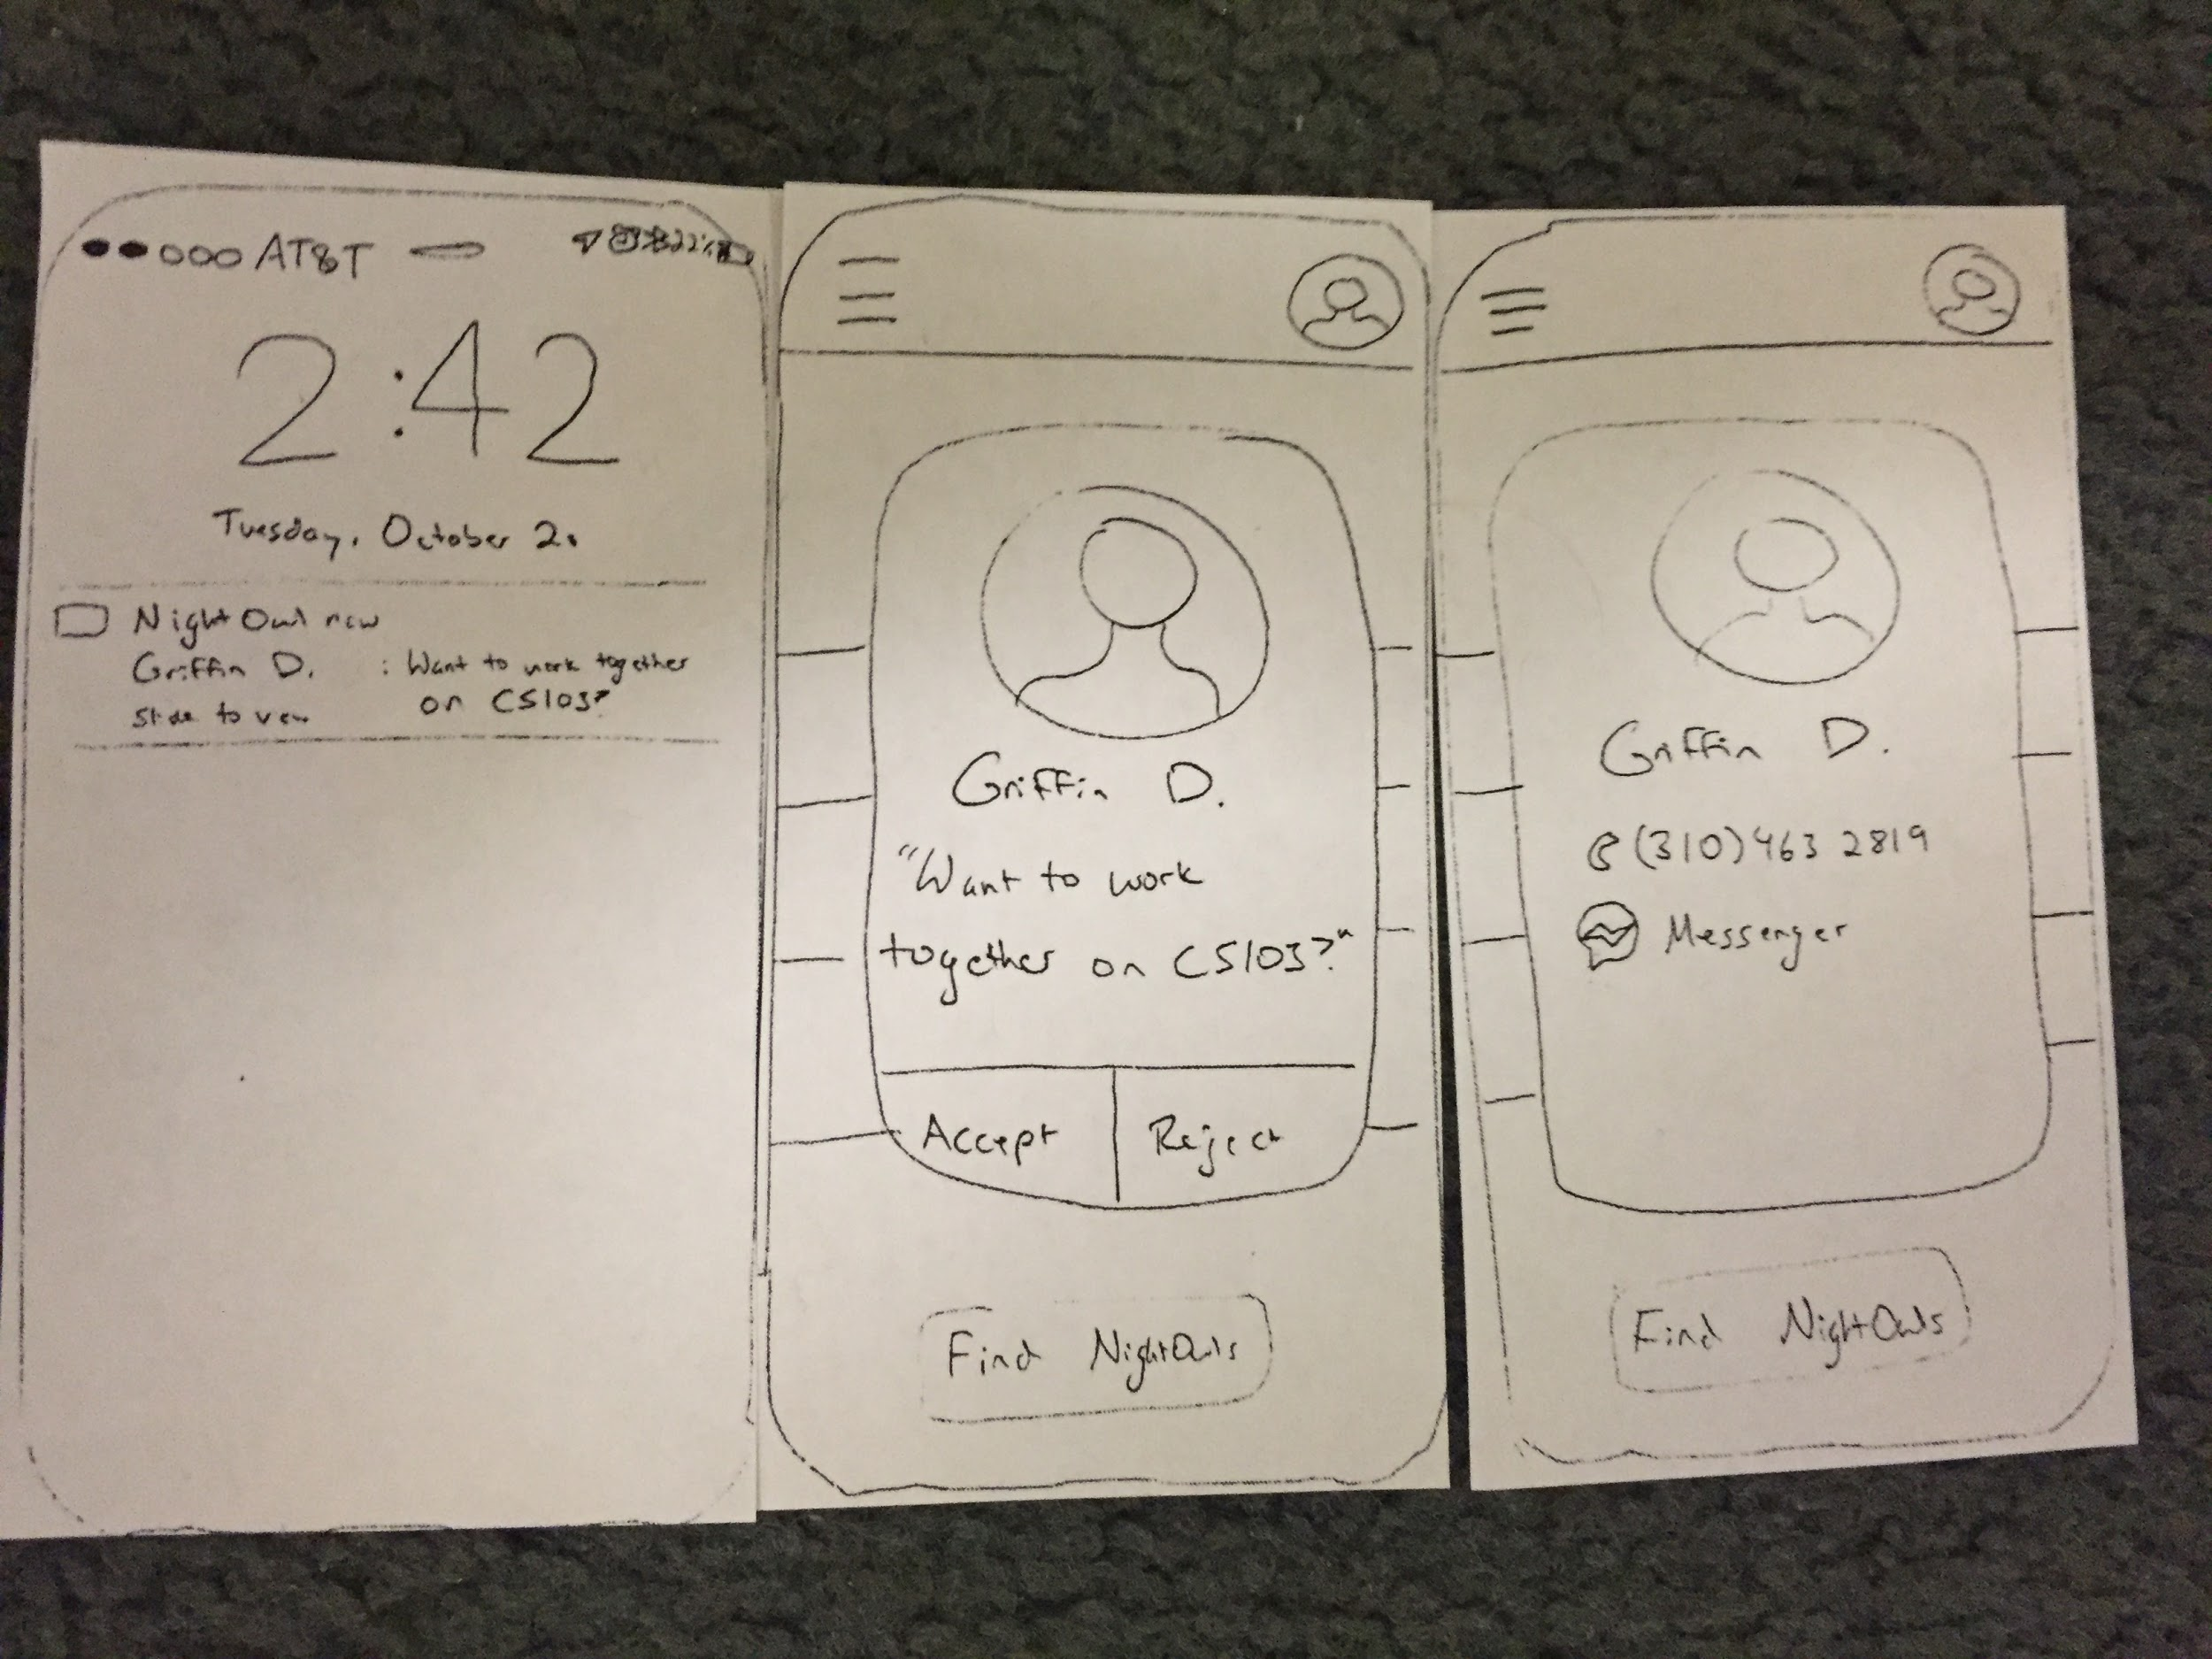 AT&T 22%
2:42
Tuesday, October 20
NightOwl now
Griffin D. : Want to work together
on CS103?
slide to view
Griffin D.
"Want to work
together on CS103?"
Accept Reject
Find NightOwls
Griffin D.
(310) 463 2819
Messenger
Find NightOwls